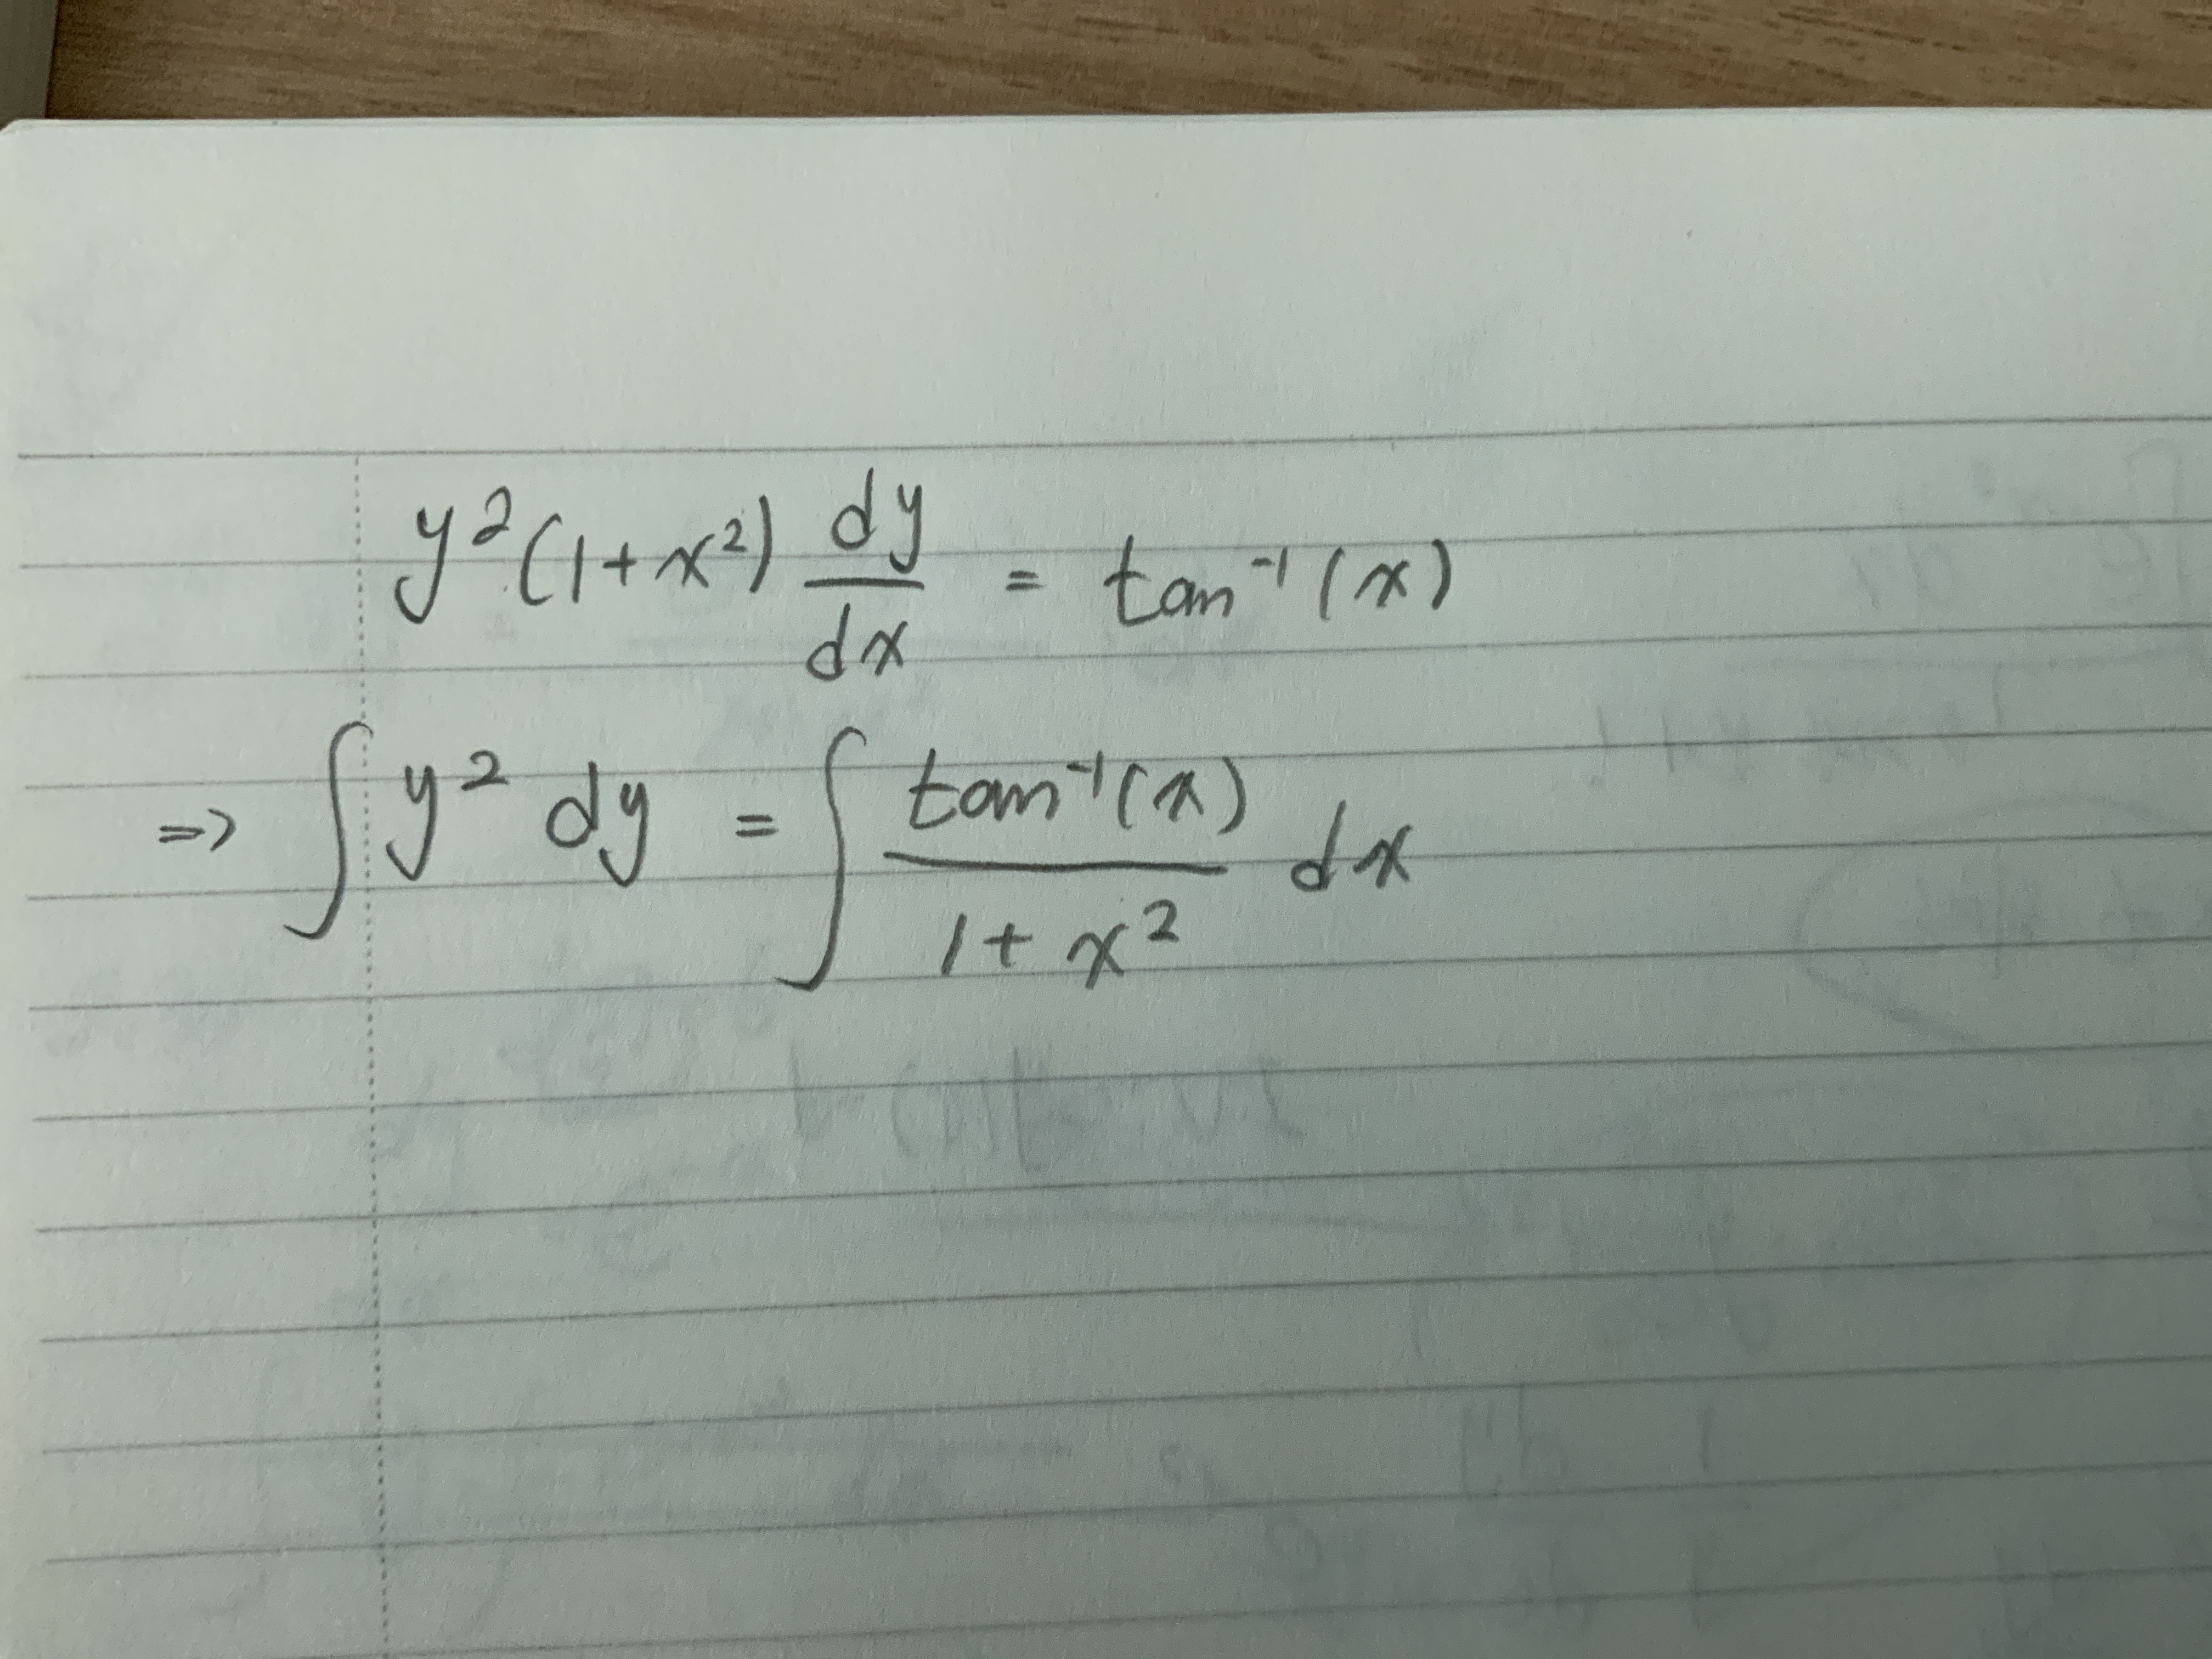 y²(1+x²) dy/dx = tan⁻¹(x)
⇒ ∫ y² dy = ∫ tan⁻¹(x)/(1+x²) dx